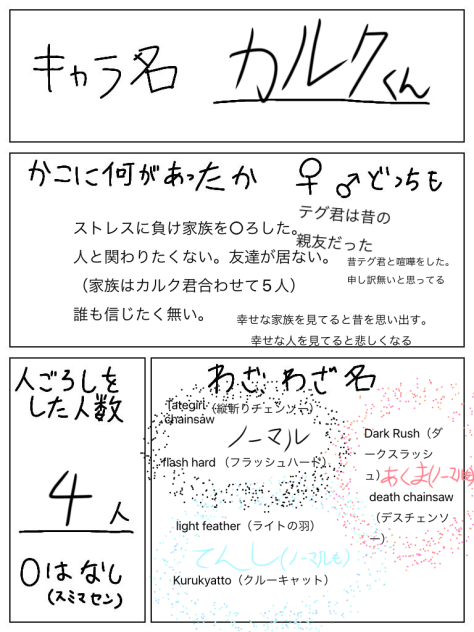 キャラ名 カルクくん
かこに何があったか ♀♂どっちも
テグ君は昔の
親友だった
ストレスに負け家族を〇ろした。
人と関わりたくない。友達が居ない。
（家族はカルク君合わせて5人）
誰も信じたく無い。
昔テグ君と喧嘩をした。
申し訳無いと思ってる
幸せな家族を見てると昔を思い出す。
幸せな人を見てると悲しくなる
人ごろしを
した人数
4人
0はなし
(スミマセン)
わざ、わざ名
Tategiri（縦斬りチェンソー）
chainsaw
ノーマル
flash hard（フラッシュハード）
Dark Rush（ダ
ークスラッシ
ュ）
あくま(ノーマルも)
death chainsaw
（デスチェンソ
ー）
light feather（ライトの羽）
てんし(ノーマルも)
Kurukyatto（クルーキャット）